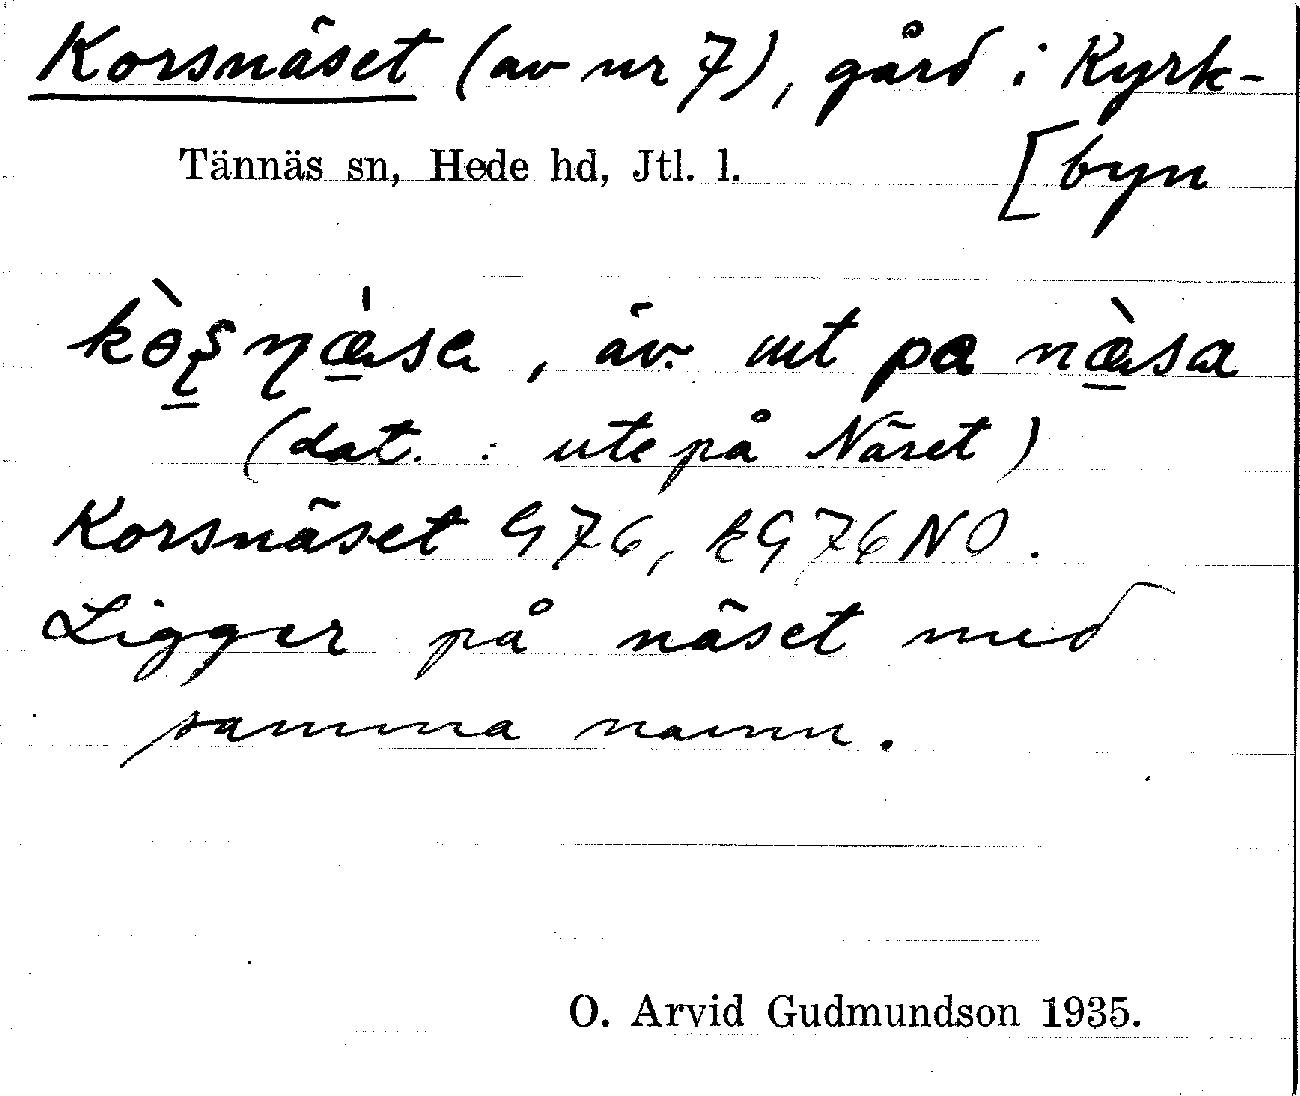 Korsnäset (av nr 7), gård i Kyrk-
Tännäs sn, Hede hd, Jtl. l. [byn
kò̱ʂɳæ̱̀sa, äv. ut pa næ̱̀sa
(dat. : ute på Näset)
Korsnäset G 76, kG 76 NO.
Ligger på näset med
samma namn.
O. Arvid Gudmundson 1935.